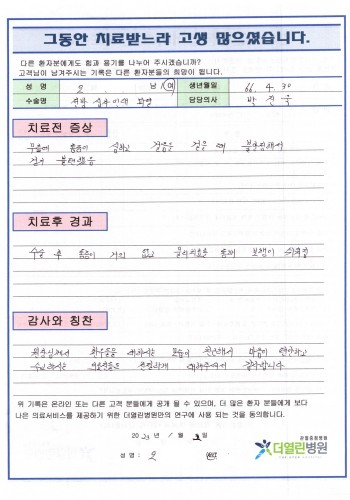 그동안 치료받느라 고생 많으셨습니다.
다른 환자분에게도 힘과 용기를 나누어 주시겠습니까?
고객님이 남겨주시는 기록은 다른 환자분들의 희망이 됩니다.
성 명 오 남 / 여 생년월일 66. 4. 30
수술명 전방 십자인대 파열 담당의사 박진국
치료전 증상
무릎에 통증이 심하고 걸음을 걸을 때 불안정해서
걷기 불편했음
치료후 경과
수술 후 통증이 거의 없고 물리치료로 통해 보행이 쉬워짐
감사와 칭찬
원장님께서 환우분들 대하시는 모습이 친절해서 마음이 편안하고
의료진분들도 친절하게 대해주셔서 감사합니다
위 기록은 온라인 또는 다른 고객 분들에게 공개 될 수 있으며, 더 많은 환자 분들에게 보다
나은 의료서비스를 제공하기 위한 더열린병원만의 연구에 사용 되는 것을 동의합니다.
2023 년 1 월 일
성 명 : 오
관절중점병원
더열린병원